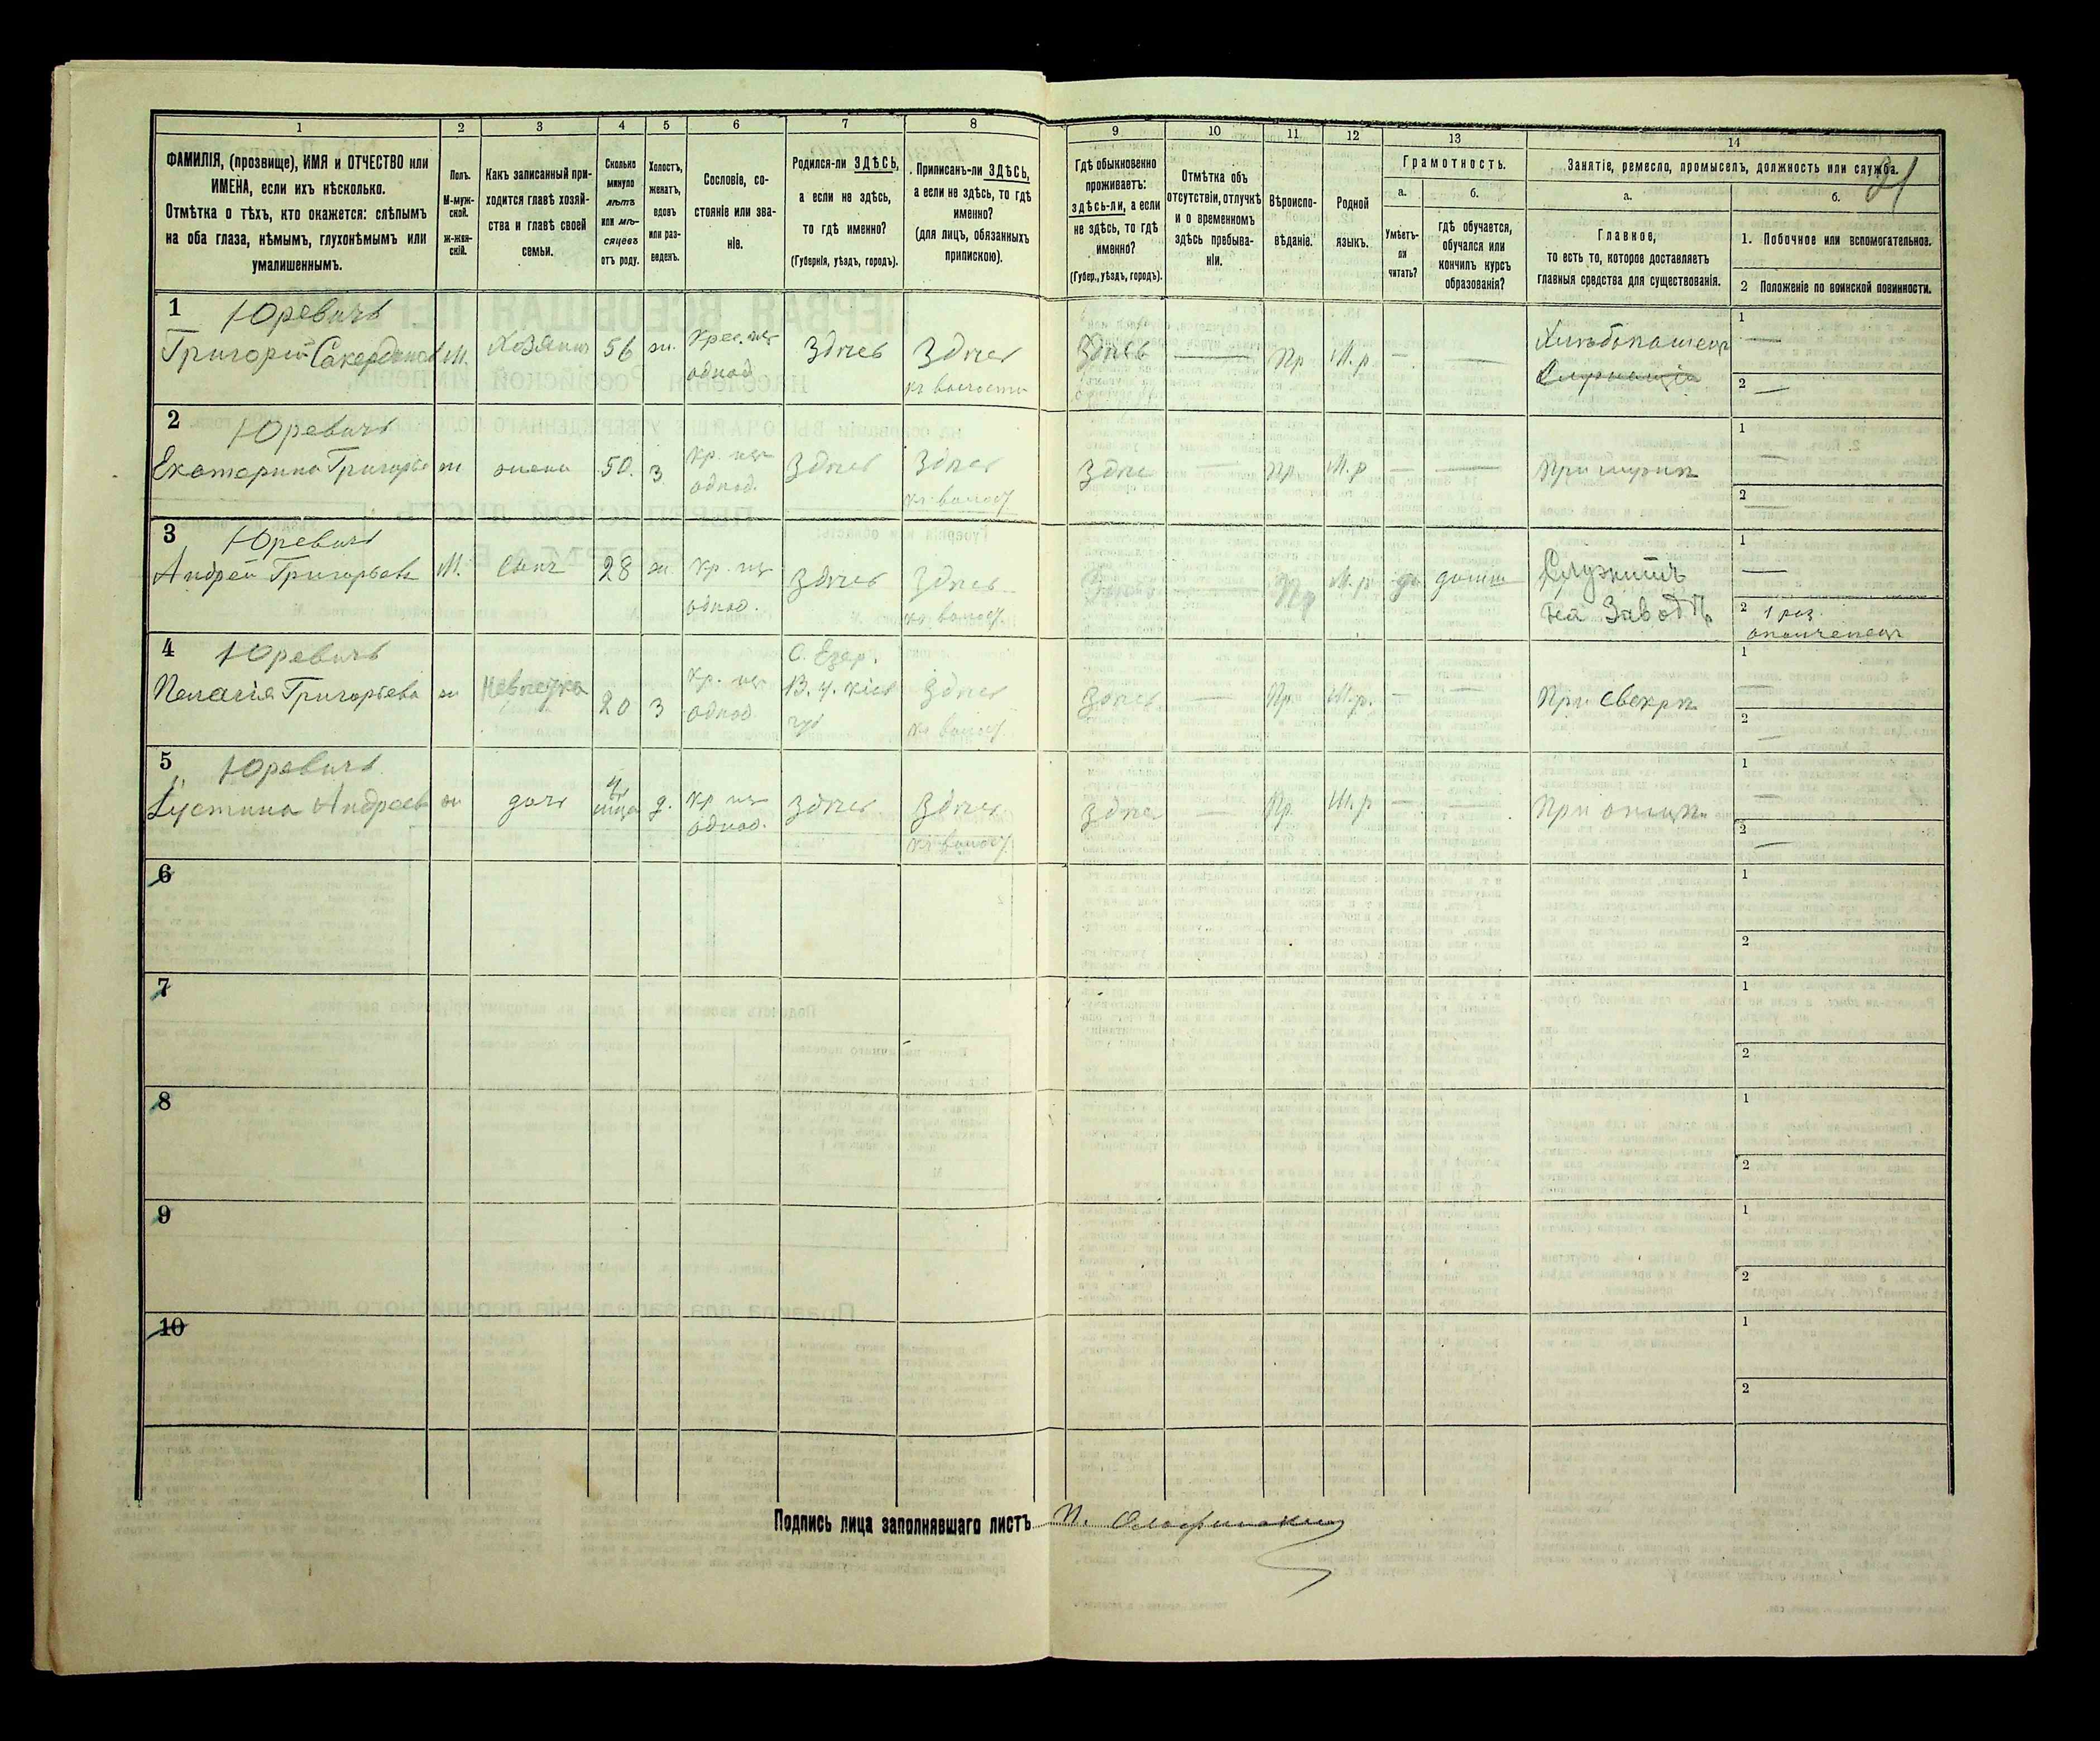 1
2
3
4
5
6
7
8
9
10
11
12
13
14
ФАМИЛІЯ, (прозвище), ИМЯ и ОТЧЕСТВО или
ИМЕНА, если ихъ нѣсколько.
Отмѣтка о тѣхъ, кто окажется: слѣпымъ
на оба глаза, нѣмымъ, глухонѣмымъ или
умалишеннымъ.
Полъ.
М-муж-
ской.
Ж-жен-
скій.
Какъ записанный при-
ходится главѣ хозяй-
ства и главѣ своей
семьи.
Сколько
минуло
лѣтъ
или мѣ-
сяцевъ
отъ роду.
Холостъ,
женатъ,
вдовъ
или раз-
веденъ.
Сословіе, со-
стояніе или зва-
ніе.
Родился-ли ЗДѢСЬ,
а если не здѣсь,
то гдѣ именно?
(Губернія, уѣздъ, городъ).
Приписанъ-ли ЗДѢСЬ,
а если не здѣсь, то гдѣ
именно?
(для лицъ, обязанныхъ
припискою).
Гдѣ обыкновенно
проживаетъ:
здѣсь-ли, а если
не здѣсь, то гдѣ
именно?
(Губер., уѣздъ, городъ).
Отмѣтка объ
отсутствіи, отлучкѣ
и о временномъ
здѣсь пребыва-
ніи.
Вѣроиспо-
вѣданіе.
Родной
языкъ.
Грамотность.
а.
б.
Умѣетъ-
ли
читать?
гдѣ обучается,
обучался или
кончилъ курсъ
образованія?
Занятіе, ремесло, промыселъ, должность или служба.
а.
б.
Главное,
то есть то, которое доставляетъ
главныя средства для существованія.
1. Побочное или вспомогательное.
2 Положеніе по воинской повинности.
1
Юревичъ
Григорій
М.
Хозяинъ
56
ж.
однод
Здѣсь
Здѣсь
къ волости
Здѣсь
—
Пр
М.р.
—
—
Хлѣбопашец
1
—
2
—
2
Юревичъ
Екатерина Григорье
ж
жена
50.
з
кр.
однод.
Здѣсь
Здѣсь
Здѣс
—
Пр.
М.р
—
—
При мужѣ
1
—
2
—
3
Юревичъ
Андрей Григорьевъ
М.
сынъ
28
ж.
кр.
однод.
Здѣсь
Здѣсь
Пр
М.р
да
Служитъ
на Заводѣ
1
—
2 1 раз.
ополченец
4
Юревичъ
Пелагія Григорьева
ж
Невѣстка
20
з
кр.
однод
С. Езер.
Здѣсь
Здѣсь
—
Пр.
М.р.
—
—
При свекрѣ
1
—
2
—
5
Юревичъ
Густина Андреев
ж
дочь
д.
кр
однод.
Здѣсь
Здѣсь
Здѣс
—
Пр.
М.р
—
—
При отцѣ
1
—
2
—
6
1
2
7
1
2
8
1
2
9
1
2
10
1
2
Подпись лица заполнявшаго листъ